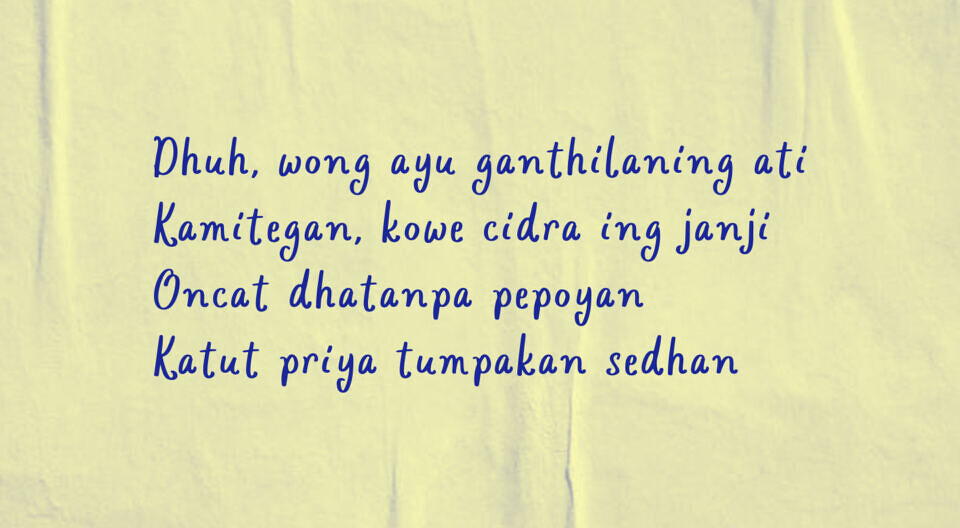 Dhuh, wong ayu ganthilaning ati
Kamitegan, kowe cidra ing janji
Oncat dhatanpa pepoyan
Katut priya tumpakan sedhan